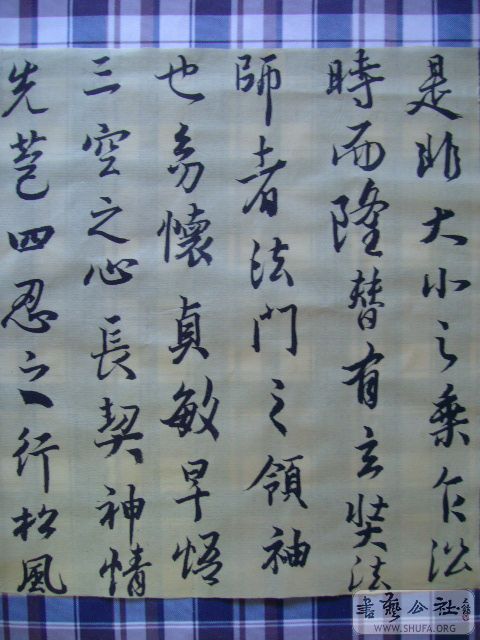 是非大小之乘乍沿
時而隆替有玄奘法
師者法門之領袖
也幼懷貞敏早悟
三空之心長契神情
先苞四忍之行松風
書藝公社
WWW.SHUFA.ORG